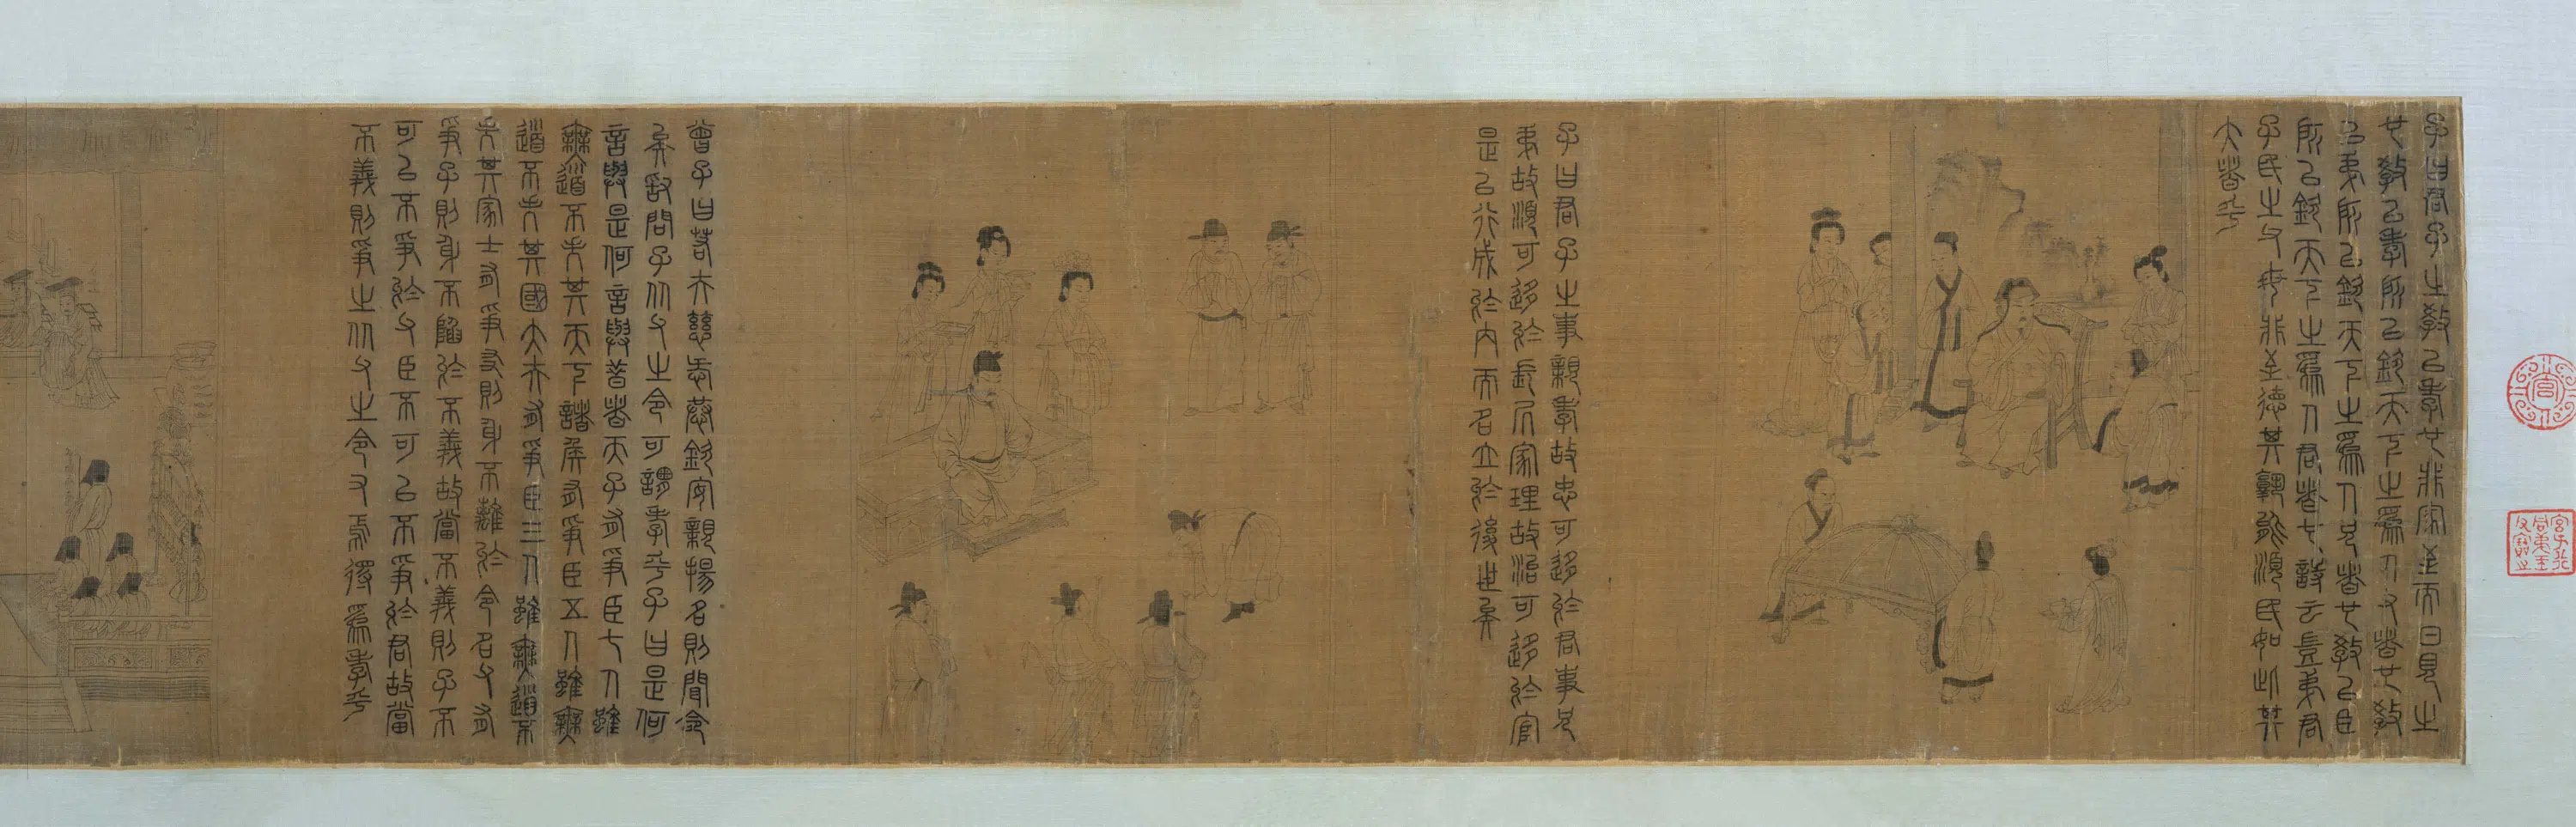 子曰君子之教以孝也非家至而日見之
也教以孝所以敬天下之爲人父者也教
以弟所以敬天下之爲人兄者也教以臣
所以敬天下之爲人君者也詩云豈弟君
子民之父母非至德其孰能順民如此其
大者乎
子曰君子之事親孝故忠可移於君事兄
弟故順可移於長居家理故治可移於官
是以行成於内而名立於後世矣
曾子曰若夫慈愛恭敬安親揚名則聞命
矣敢問子从父之令可謂孝乎子曰是何
言與是何言與昔者天子有爭臣七人雖
無道不失其天下諸侯有爭臣五人雖無
道不失其國大夫有爭臣三人雖無道不
失其家士有爭友則身不離於令名父有
爭子則身不陷於不義故當不義則子不
可以不爭於父臣不可以不爭於君故當
不義則爭之从父之令又焉得爲孝乎
宮
宮子行
同弟玉
父寶之